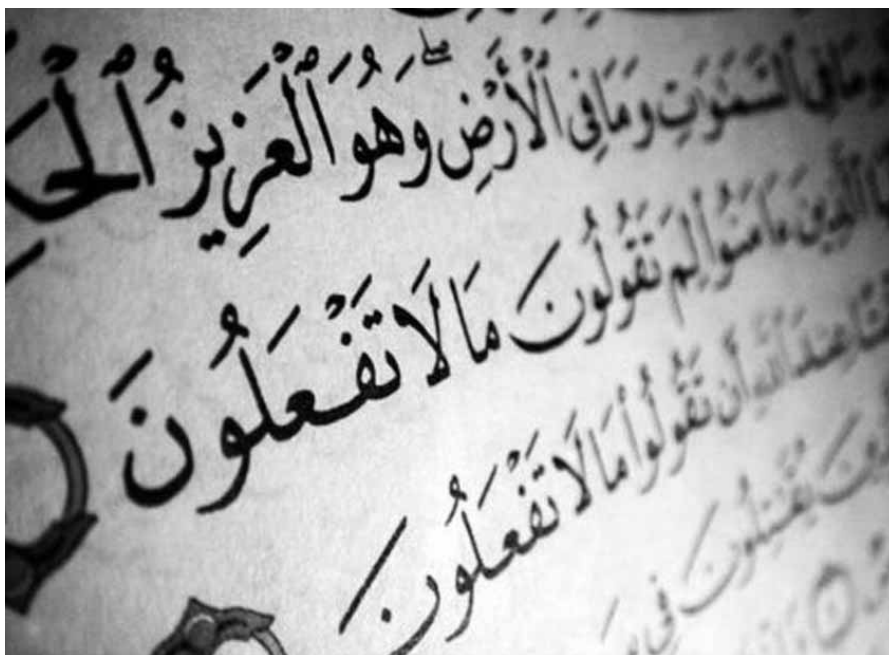 وَمَا فِي ٱلسَّمَٰوَٰتِ وَمَا فِي ٱلْأَرْضِ ۖ وَهُوَ ٱلْعَزِيزُ
ٱلَّذِينَ ءَامَنُوا۟ لِمَ تَقُولُونَ مَا لَا تَفْعَلُونَ
عِندَ ٱللَّهِ أَن تَقُولُوا۟ مَا لَا تَفْعَلُونَ
يُقَٰتِلُونَ فِي